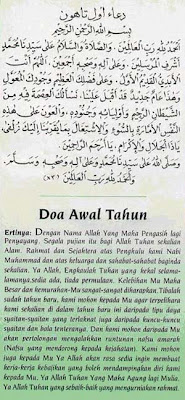 دعاء اول تاهون
بسم الله الرحمن الرحيم
الحمد لله رب العالمين، والصلاة والسلام على سيدنا محمد
وعلى آله وصحبه أجمعين، اللهم أنت
الأبدي القديم الأول، وعلى فضلك العظيم وجودك المعول
وهذا عام جديد قد أقبل، نسألك العصمة فيه من
الشيطان الرجيم وأوليائه وجنوده، والعون على هذه
النفس الأمارة بالسوء والاشتغال بما يقربني إليك زلفى
يا ذا الجلال والإكرام
وصلى الله على سيدنا محمد وعلى آله وصحبه وسلم.
والحمد لله رب العالمين
Doa Awal Tahun
Ertinya: Dengan Nama Allah Yang Maha Pengasih lagi
Penyayang. Segala pujian itu bagi Allah Tuhan sekalian
Alam. Rahmat dan Sejahtera atas Penghulu kami Nabi
Muhammad dan atas keluarga dan sahabat-sahabat baginda
sekalian. Ya Allah, Engkaulah Tuhan yang kekal selama-
lamanya.sedia ada, tiada permulaan. Kelebihan Mu Maha
Besar dan kemurahan-Mu sangat-sangat diharapkan.Tibalah
sudah tahun baru, kami mohon kepada Mu agar terpelihara
kami sekalian di dalam tahun baru ini daripada tipu daya
syaitan-syaitan yang terlaknat juga daripada kuncu-kuncu
syaitan dan bala tenteranya. Dan kami mohon daripada Mu
akan pertolongan mengalahkan runtunan nafsu amarah
(Nafsu yang mendorong kepada kejahatan). Kami mohon
juga kepada Mu Ya Allah akan rasa sedia ingin membuat
kerja-kerja kebajikan yang boleh mendampingkan diri kami
kepada Mu. Ya Allah Tuhan Yang Maha Agung lagi Mulia.
Ya Allah Tuhan yang sebaik-baik yang mengurniakan rahmat.